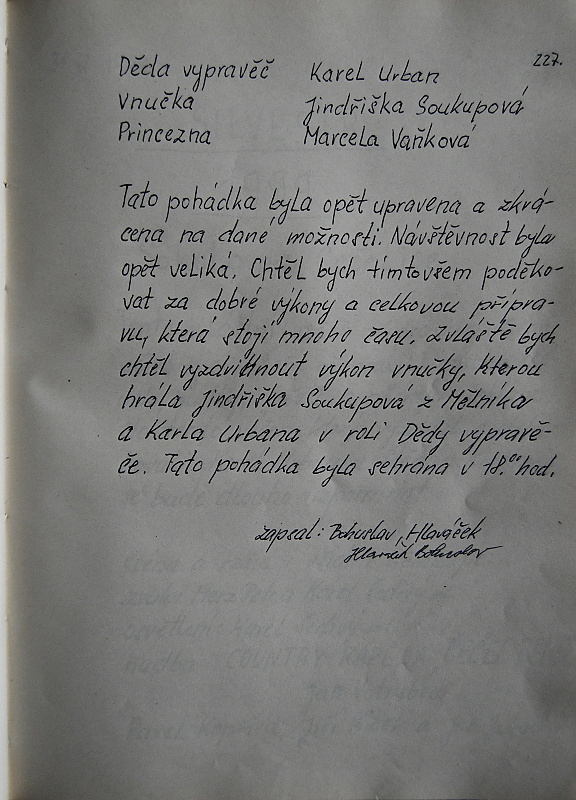 227.
Děda vypravěč Karel Urban
Vnučka Jindřiška Soukupová
Princezna Marcela Vaňková
Tato pohádka byla opět upravena a zkrá-
cena na dané možnosti. Návštěvnost byla
opět veliká. Chtěl bych tímto všem poděko-
vat za dobré výkony a celkovou přípra-
vu, která stojí mnoho času. Zvláště bych
chtěl vyzdvihnout výkon vnučky, kterou
hrála Jindřiška Soukupová z Mělníka
a Karla Urbana v roli Dědy vypravě-
če. Tato pohádka byla sehrána v 18.00 hod.
zapsal: Bohuslav Hlaváček
Hlaváček Bohuslav